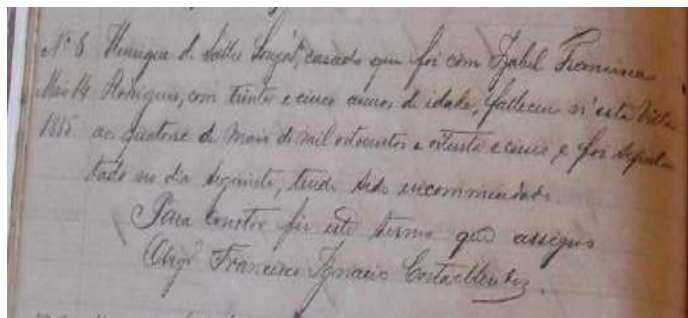 Nº 8 Henrique de Salles, casado que foi com Izabel Francisca
Maio 14 Rodrigues, com trinta e cinco annos de idade, falleceu n'esta Villa
1885 aos quatorze de Maio de mil oitocentos e oitenta e cinco e foi sepul-
tado no dia seguinte, tendo sido encommendado.
Para constar fiz este termo que assigno
Francisco Ignacio